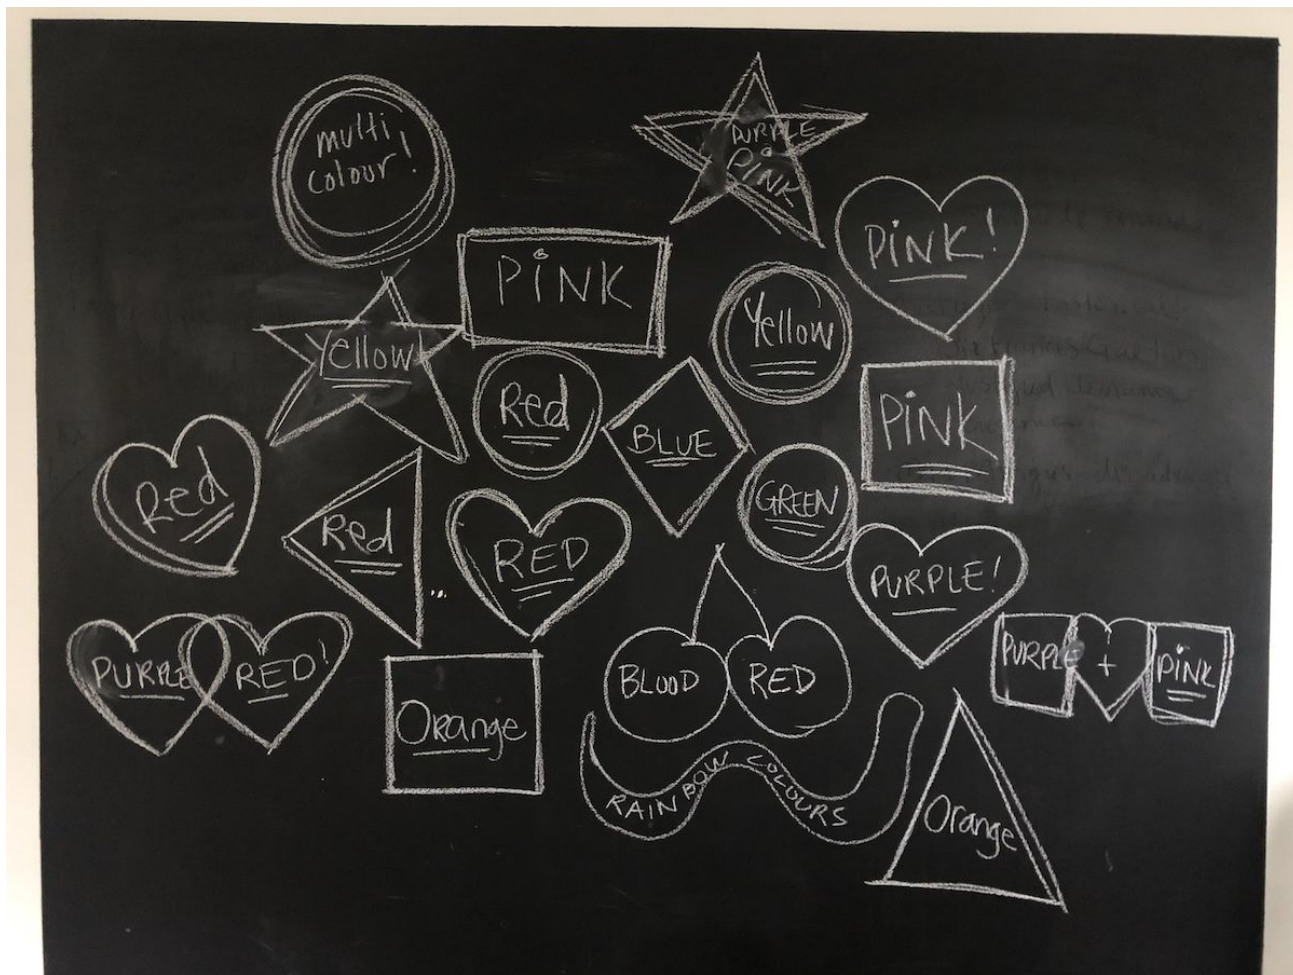 multi
colour!
PURPLE
&
PINK
PINK!
PINK
Yellow
Yellow
Red
BLUE
PINK
Red
Red
RED
GREEN
PURPLE!
PURPLE RED!
Orange
BLOOD RED
PURPLE + PINK
RAINBOW COLOURS
Orange